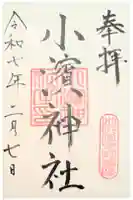 奉拝
小濱神社
令和七年二月七日